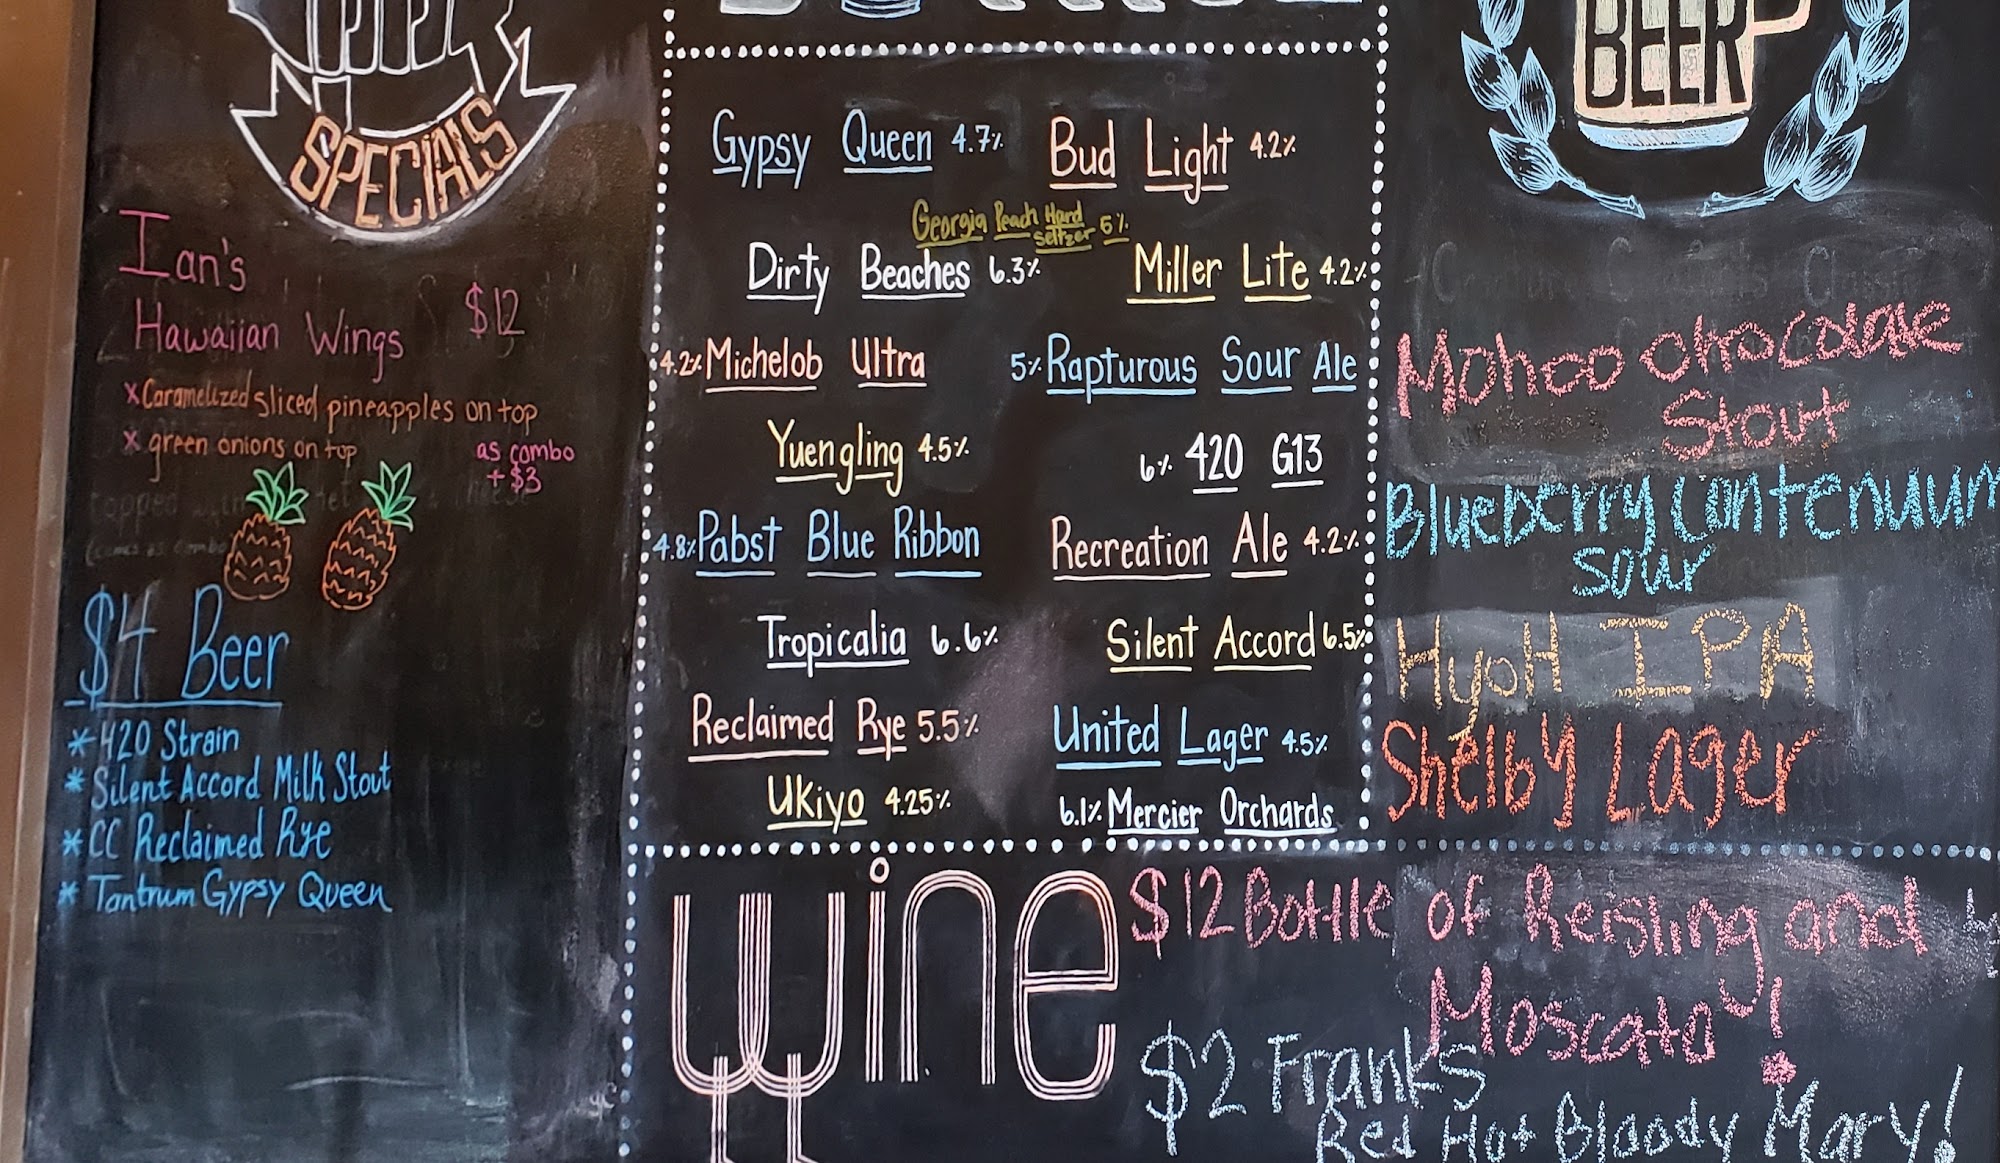 SPECIALS
Ian's
Hawaiian Wings $12
x Caramelized sliced pineapples on top
x green onions on top
as combo
+ $3
$4 Beer
* 420 Strain
* Silent Accord Milk Stout
* CC Reclaimed Rye
* Tantrum Gypsy Queen
Gypsy Queen 4.7%
Bud Light 4.2%
Georgia Peach Hard
Seltzer 5%
Dirty Beaches 6.3%
Miller Lite 4.2%
4.2% Michelob Ultra
5% Rapturous Sour Ale
Yuengling 4.5%
6% 420 G13
4.8% Pabst Blue Ribbon
Recreation Ale 4.2%
Tropicalia 6.6%
Silent Accord 6.5%
Reclaimed Rye 5.5%
United Lager 4.5%
Ukiyo 4.25%
6.1% Mercier Orchards
BEER
Mohoo Chocolate
Stout
Blueberry Contenuum
Sour
HyoH IPA
Shelby Lager
wine
$12 Bottle of Reisling and
Moscato!
$2 Franks
Red Hot Bloody Mary!